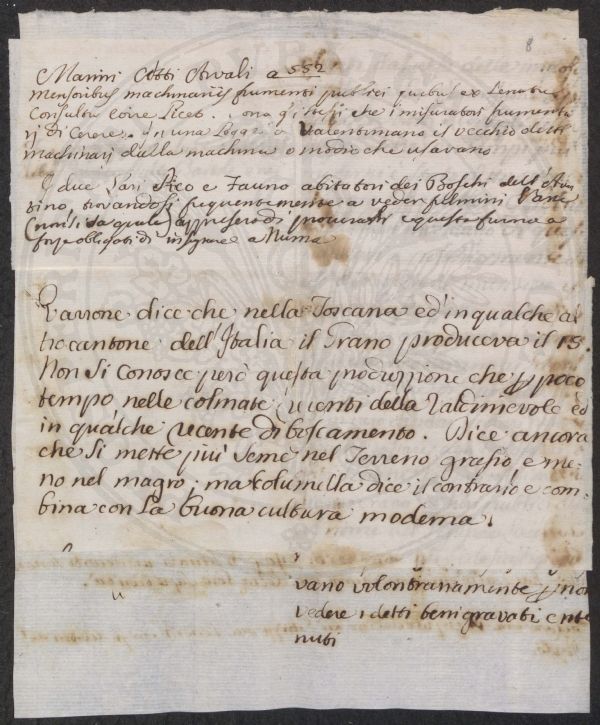 8
Marini Atti Arvali a 552
Mensoribus machinariis frumenti publici quibus ex Senatus
Consulto coire licet. che i misuratori frumenta
rj di Cerere in una Legge di Valentiniano il vecchio detti
machinarj dalla machina o modio che usavano
I due Pico e Fauno abitatori dei Boschi dell'Aven
tino, trovandosi frequentemente a veder fulmini
(non si sa quale) appresero di procurarli e questa furono
obligati di insegnare a Numa
Varrone dice che nella Toscana ed in qualche al
tro cantone dell'Italia il Grano produceva il 15.
Non si conosce però questa produzzione che p poco
tempo nelle colmate recenti della Valdinievole ed
in qualche recente diboscamento. Dice ancora
che si mette più seme nel Terreno grasso, e me
no nel magro; ma Columella dice il contrario e com
bina con la buona cultura moderna.
vano volontariamente p non
vedere i detti beni gravati e
nuti